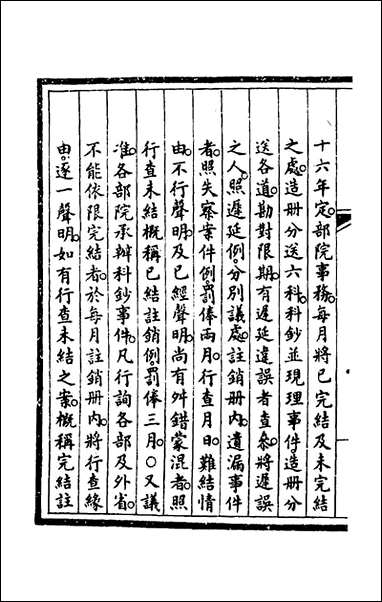 十六年定。部院事務。每月將已完結及未完結
之處。造册分送六科。科鈔並現理事件。造册分
送各道。勘對限期。有遲延違誤者查參。將遲誤
之人。照遲延例。分別議處。註銷册內。遺漏事件
者。照失察案件例。罰俸兩月。行查月日。難結情
由。不行聲明。及已經聲明。尚有舛錯蒙混者。照
行查未結概稱已結註銷例。罰俸三月。○又議
准。各部院承辦科鈔事件。凡行詢各部及外省。
不能依限完結者。於每月註銷册內。將行查緣
由。逐一聲明。如有行查未結之案。概稱完結註